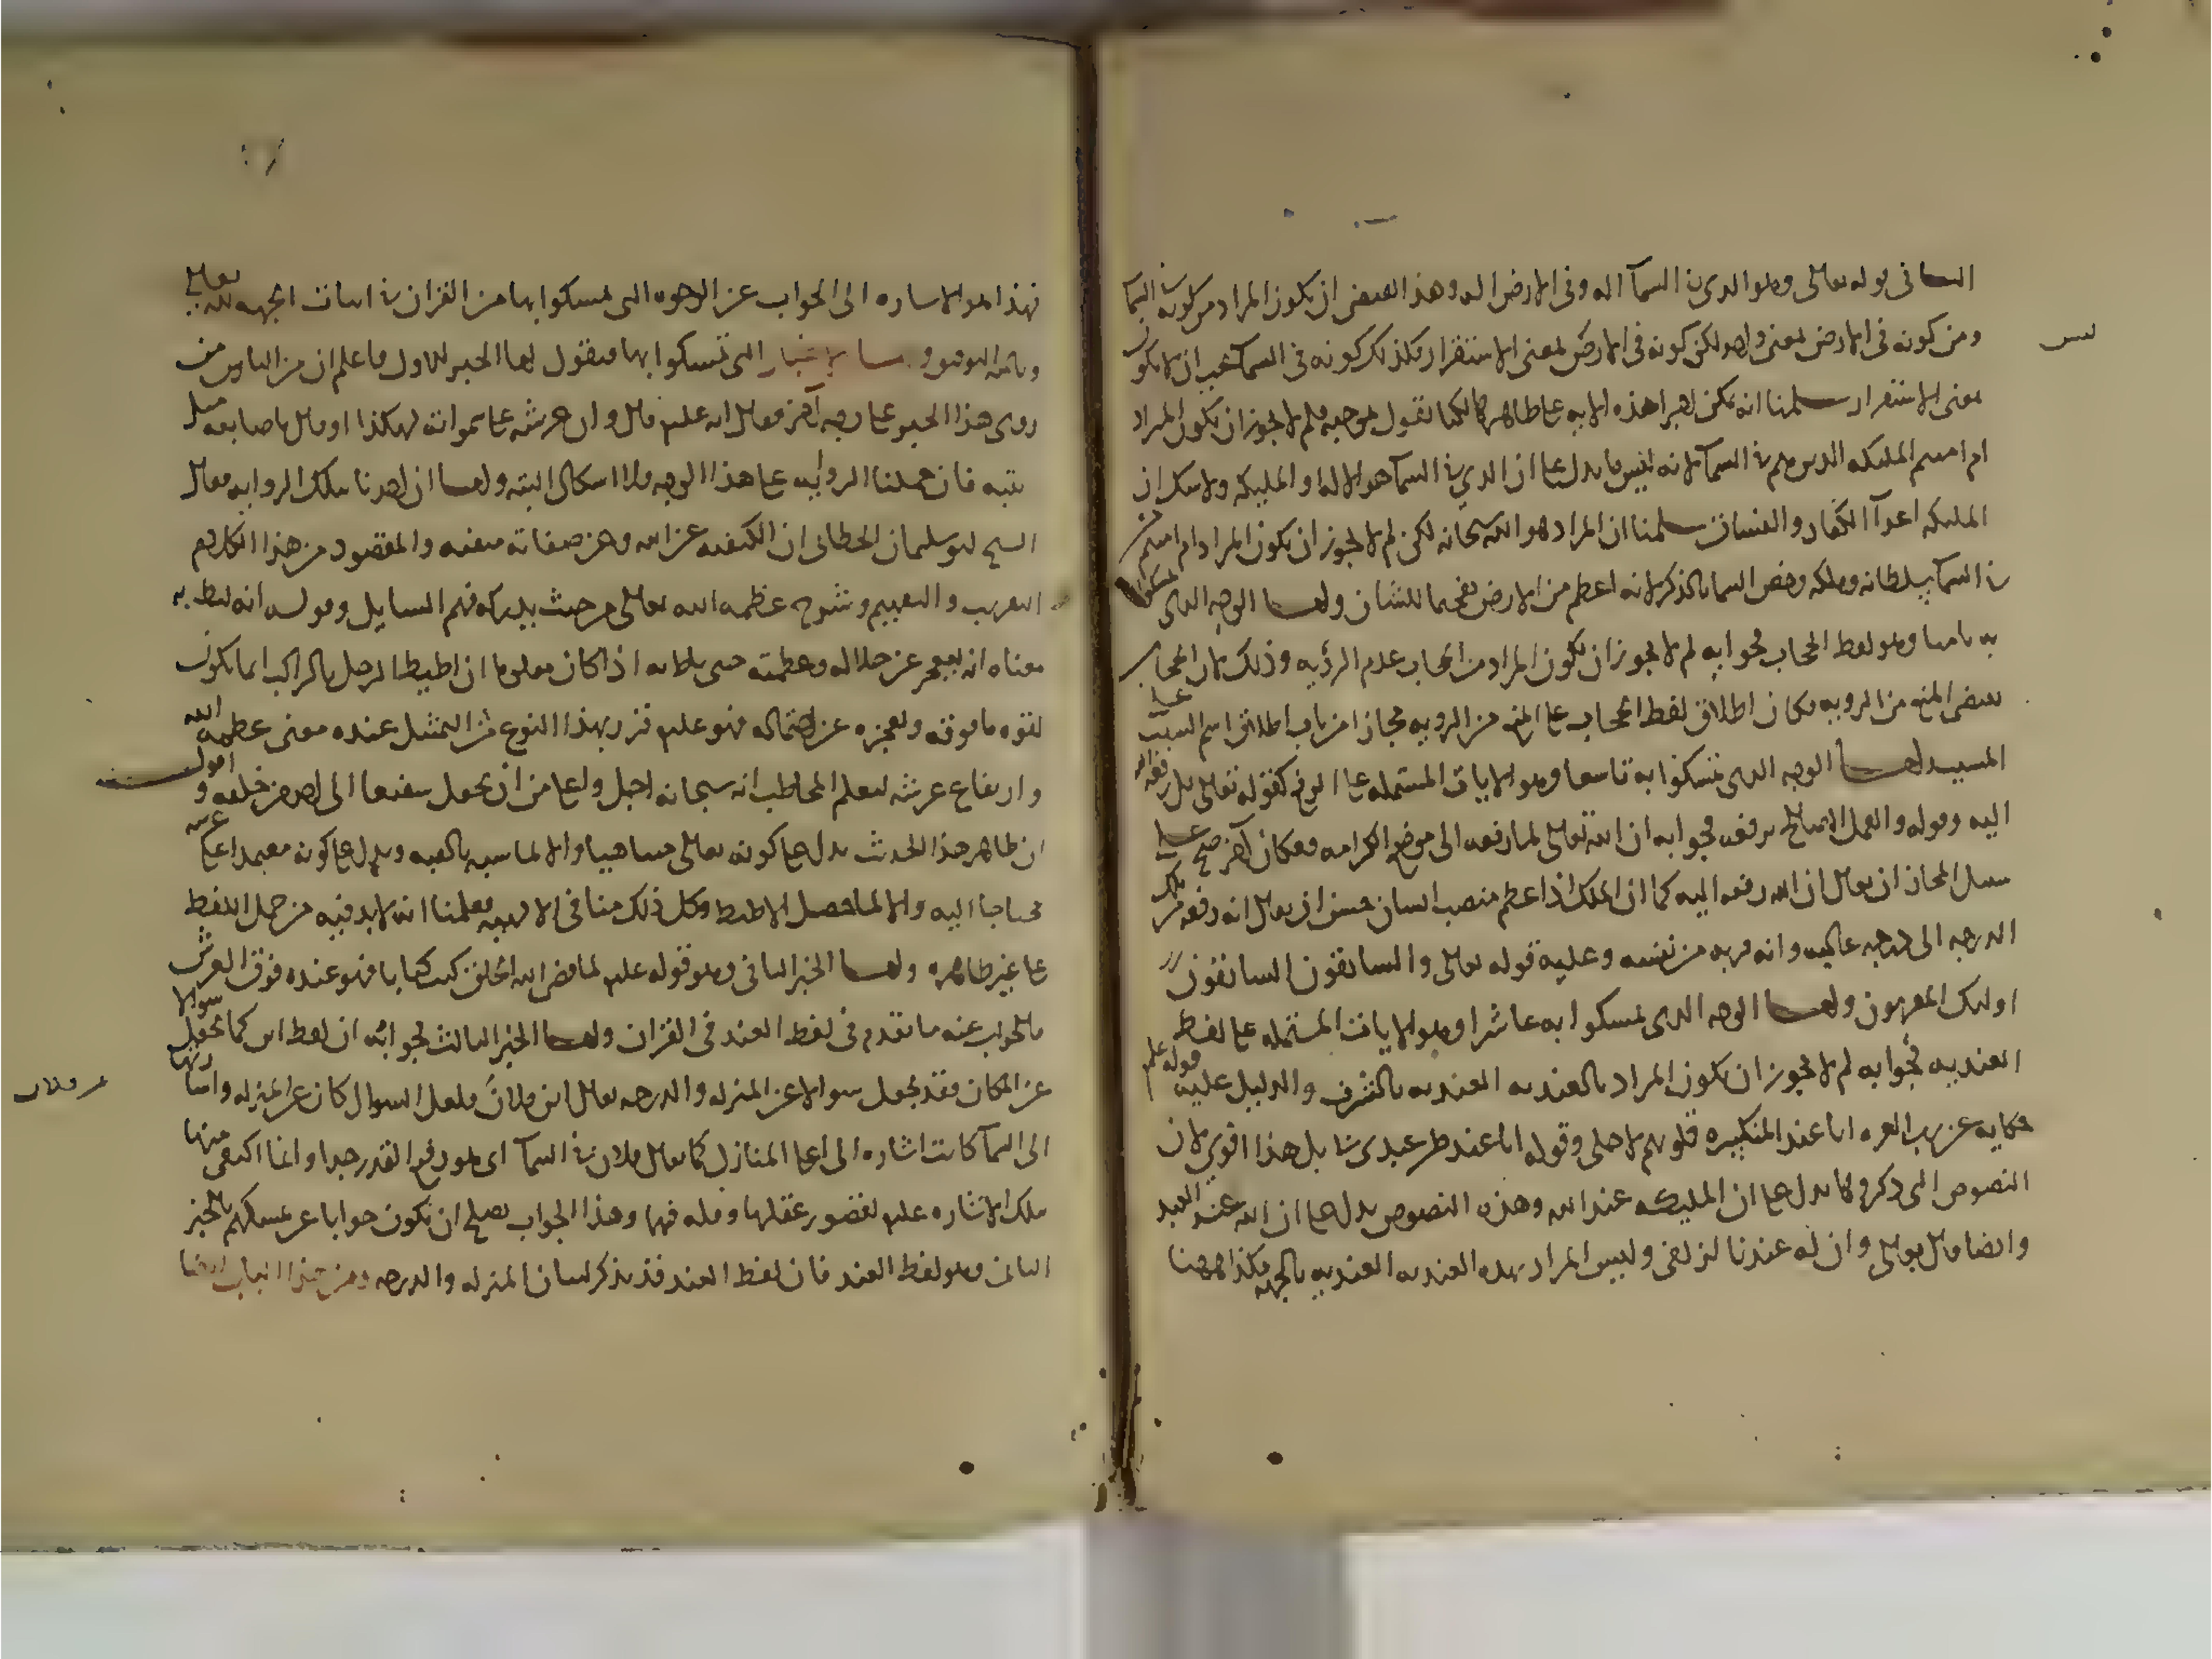 الثانى قوله تعالى وهو الذى فى السمآ اله وفى الارض اله وهذا يقتضى ان يكون المراد من كونه فى السمآ
ومن كونه فى الارض معنى واحد لكن كونه فى الارض ليس بمعنى الاستقرار فكذلك كونه فى السمآ يجب ان لا يكون
بمعنى الاستقرار سلمنا انه يمكن اجرا هذه الايه على ظاهرها لكنا نقول بموجبه فلم لا يجوز ان يكون المراد
ام امنتم الملايكه الذين هم فى السمآ لانه ليس ما يدل على ان الذى فى السمآ هو الاله او المليكه ولا شك ان
المليكه اعدآ الكفار والفساق سلمنا ان المراد هو الله سبحانه لكن لم لا يجوز ان يكون المراد ام امنتم من
فى السمآ سلطانه وملكه وخص السما بالذكر لانه اعظم من الارض تفخيما للشان واما الوجه الذى تمسكوا
به ثامنا وهو لفظ الحجاب فجوابه لم لا يجوز ان يكون المراد من الحجاب عدم الرؤيه وذلك لان الحجاب
يقتضى المنع من الرويه فكان اطلاق لفظ الحجاب على المنع من الرويه مجازا من باب اطلاق اسم السبب على
المسبب واما الوجه الذى تمسكوا به تاسعا وهو الايات المشتمله على الرفع كقوله تعالى بل رفعه الله
اليه وقوله والعمل الصالح يرفعه فجوابه ان الله تعالى لما رفعه الى موضع الكرامه ومكان آخر صح على
سبيل المجاز ان يقال ان الله رفعه اليه كما ان الملك اذا عظم منصب انسان حسن ان يقال انه رفعه من تلك
الدرجه الى درجه عاليه وانه قربه من نفسه وعليه قوله تعالى والسابقون السابقون
اوليك المقربون واما الوجه الذى تمسكوا به عاشرا وهو الايات المشتمله على لفظ
العنديه فجوابه لم لا يجوز ان يكون المراد بالعنديه العنديه بالشرف والدليل عليه قوله علم
حكايه عن رب العزه انا عند المنكسره قلوبهم لاجلى وقوله انا عند ظن عبدى بى بل هذا اقوى لان
النصوص التى ذكروها يدل على ان المليكه عند الله وهذه النصوص يدل على ان الله عند العبد
وايضا قال تعالى وان له عندنا لزلفى وليس المراد بهذه العنديه العنديه بالجهه فكذا ههنا
فهذا هو الاشاره الى الجواب عن الوجوه التى تمسكوا بها من القران فى اثبات الجهه لله تعالى
وبالله التوفيق واما الاخبار التى تمسكوا بها فنقول اما الخبر الاول فاعلم ان من الناس من
روى هذا الخبر على وجه آخر فقال انه علم قال وان عرشه على سمواته لهكذا وقال باصابعه مثل
قبه فان حملنا الروايه على هذا الوجه فلا اشكال البته واما ان اخذنا بتلك الروايه فقال
الشيخ ابو سليمان الخطابى ان الكيفيه عن الله وعن صفاته منفيه والمقصود من هذا الكلام
التقريب والتفهيم وشرح عظمه الله تعالى من حيث يدركه فهم السايل وقوله انه ليئط به
معناه انه يعجز عن جلاله وعظمته حتى يئط به اذا كان معلوما ان اطيط الرحل بالراكب انما يكون
لقوه ما فوقه ولعجزه عن احتماله فهو علم قرر بهذا النوع من التمثيل عنده معنى عظمه الله
وارتفاع عرشه ليعلم المخاطب انه سبحانه اجل واعلى من ان يجعل شفيعا الى احد من خلقه واقول
ان ظاهر هذا الحديث يدل على كونه تعالى متناهيا والا لما شبه بالقبه ويدل على كونه معتمدا على عرشه
محتاجا اليه والا لما حصل الاطيط وكل ذلك منافى الالهيه فعلمنا انه لا بد فيه من حمل اللفظ
على غير ظاهره واما الخبر الثانى وهو قوله علم لما قضى الله الخلق كتب كتابا فهو عنده فوق العرش
فالجواب عنه ما تقدم فى لفظ العند فى القران واما الخبر الثالث فجوابه ان لفظ اين كما يجعل سوالا
عن المكان فقد يجعل سوالا عن المنزله والدرجه يقال اين فلان من فلان فلعل السوال كان عن المنزله واشارتها
الى السمآ كانت اشاره الى اعلى المنازل كما يقال فلان فى السمآ اى هو رفيع القدر جدا وانما اكتفى منها
بتلك الاشاره علم لقصور عقلها وقله فهمها وهذا الجواب يصلح ان يكون جوابا عن تمسكهم بالخبر
الثانى وهو لفظ العند فان لفظ العند قد يذكر لبيان المنزله والدرجه ومن هذا الباب ايضا